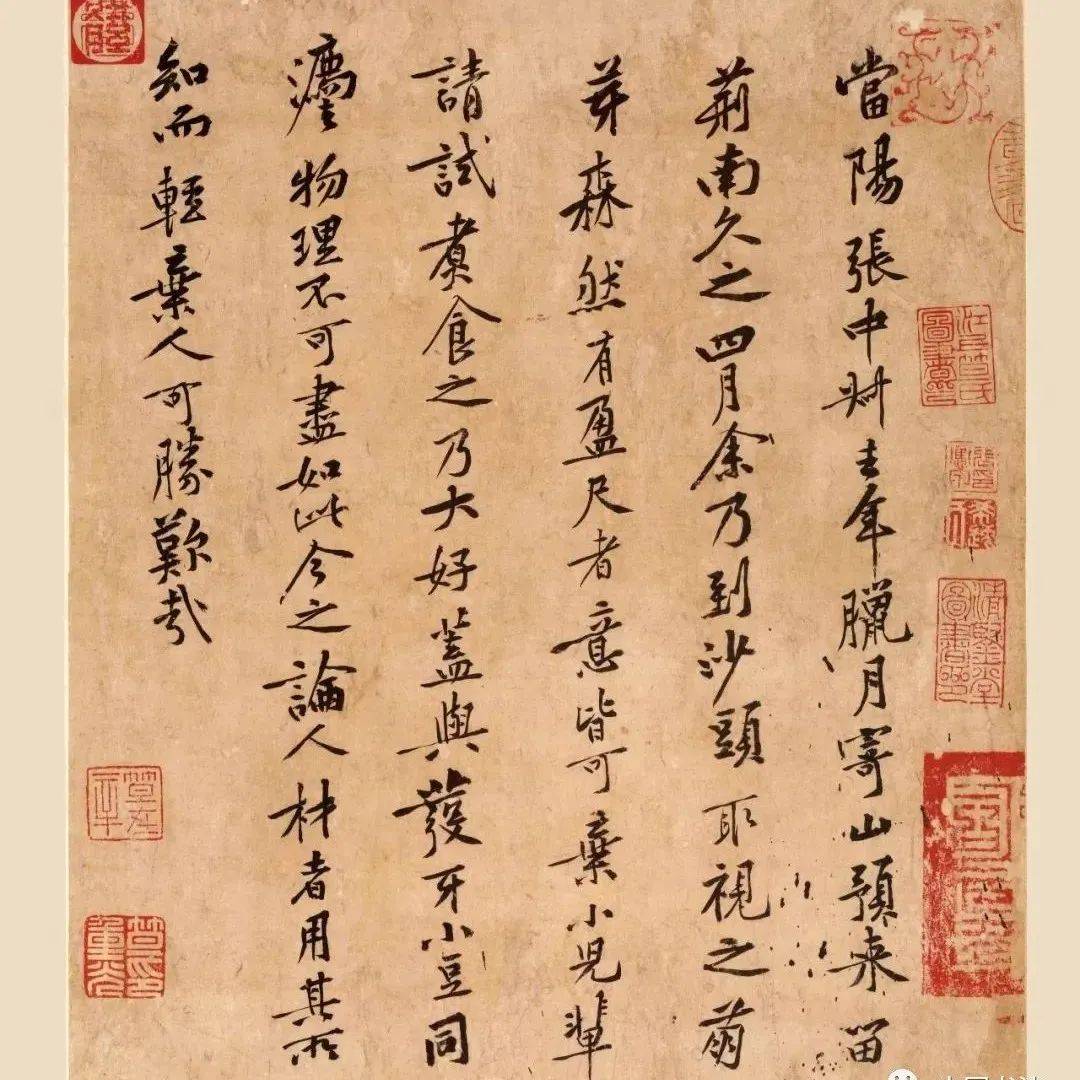 當陽張中叔去年臘月寄山預来留
荊南久之四月余乃到沙頭取視之萌
芽森然有盈尺者意皆可棄小兒輩
請試煑食之乃大好蓋與發牙小豆同
瀍物理不可盡如此今之論人材者用其所
知而輕棄人可勝歎哉